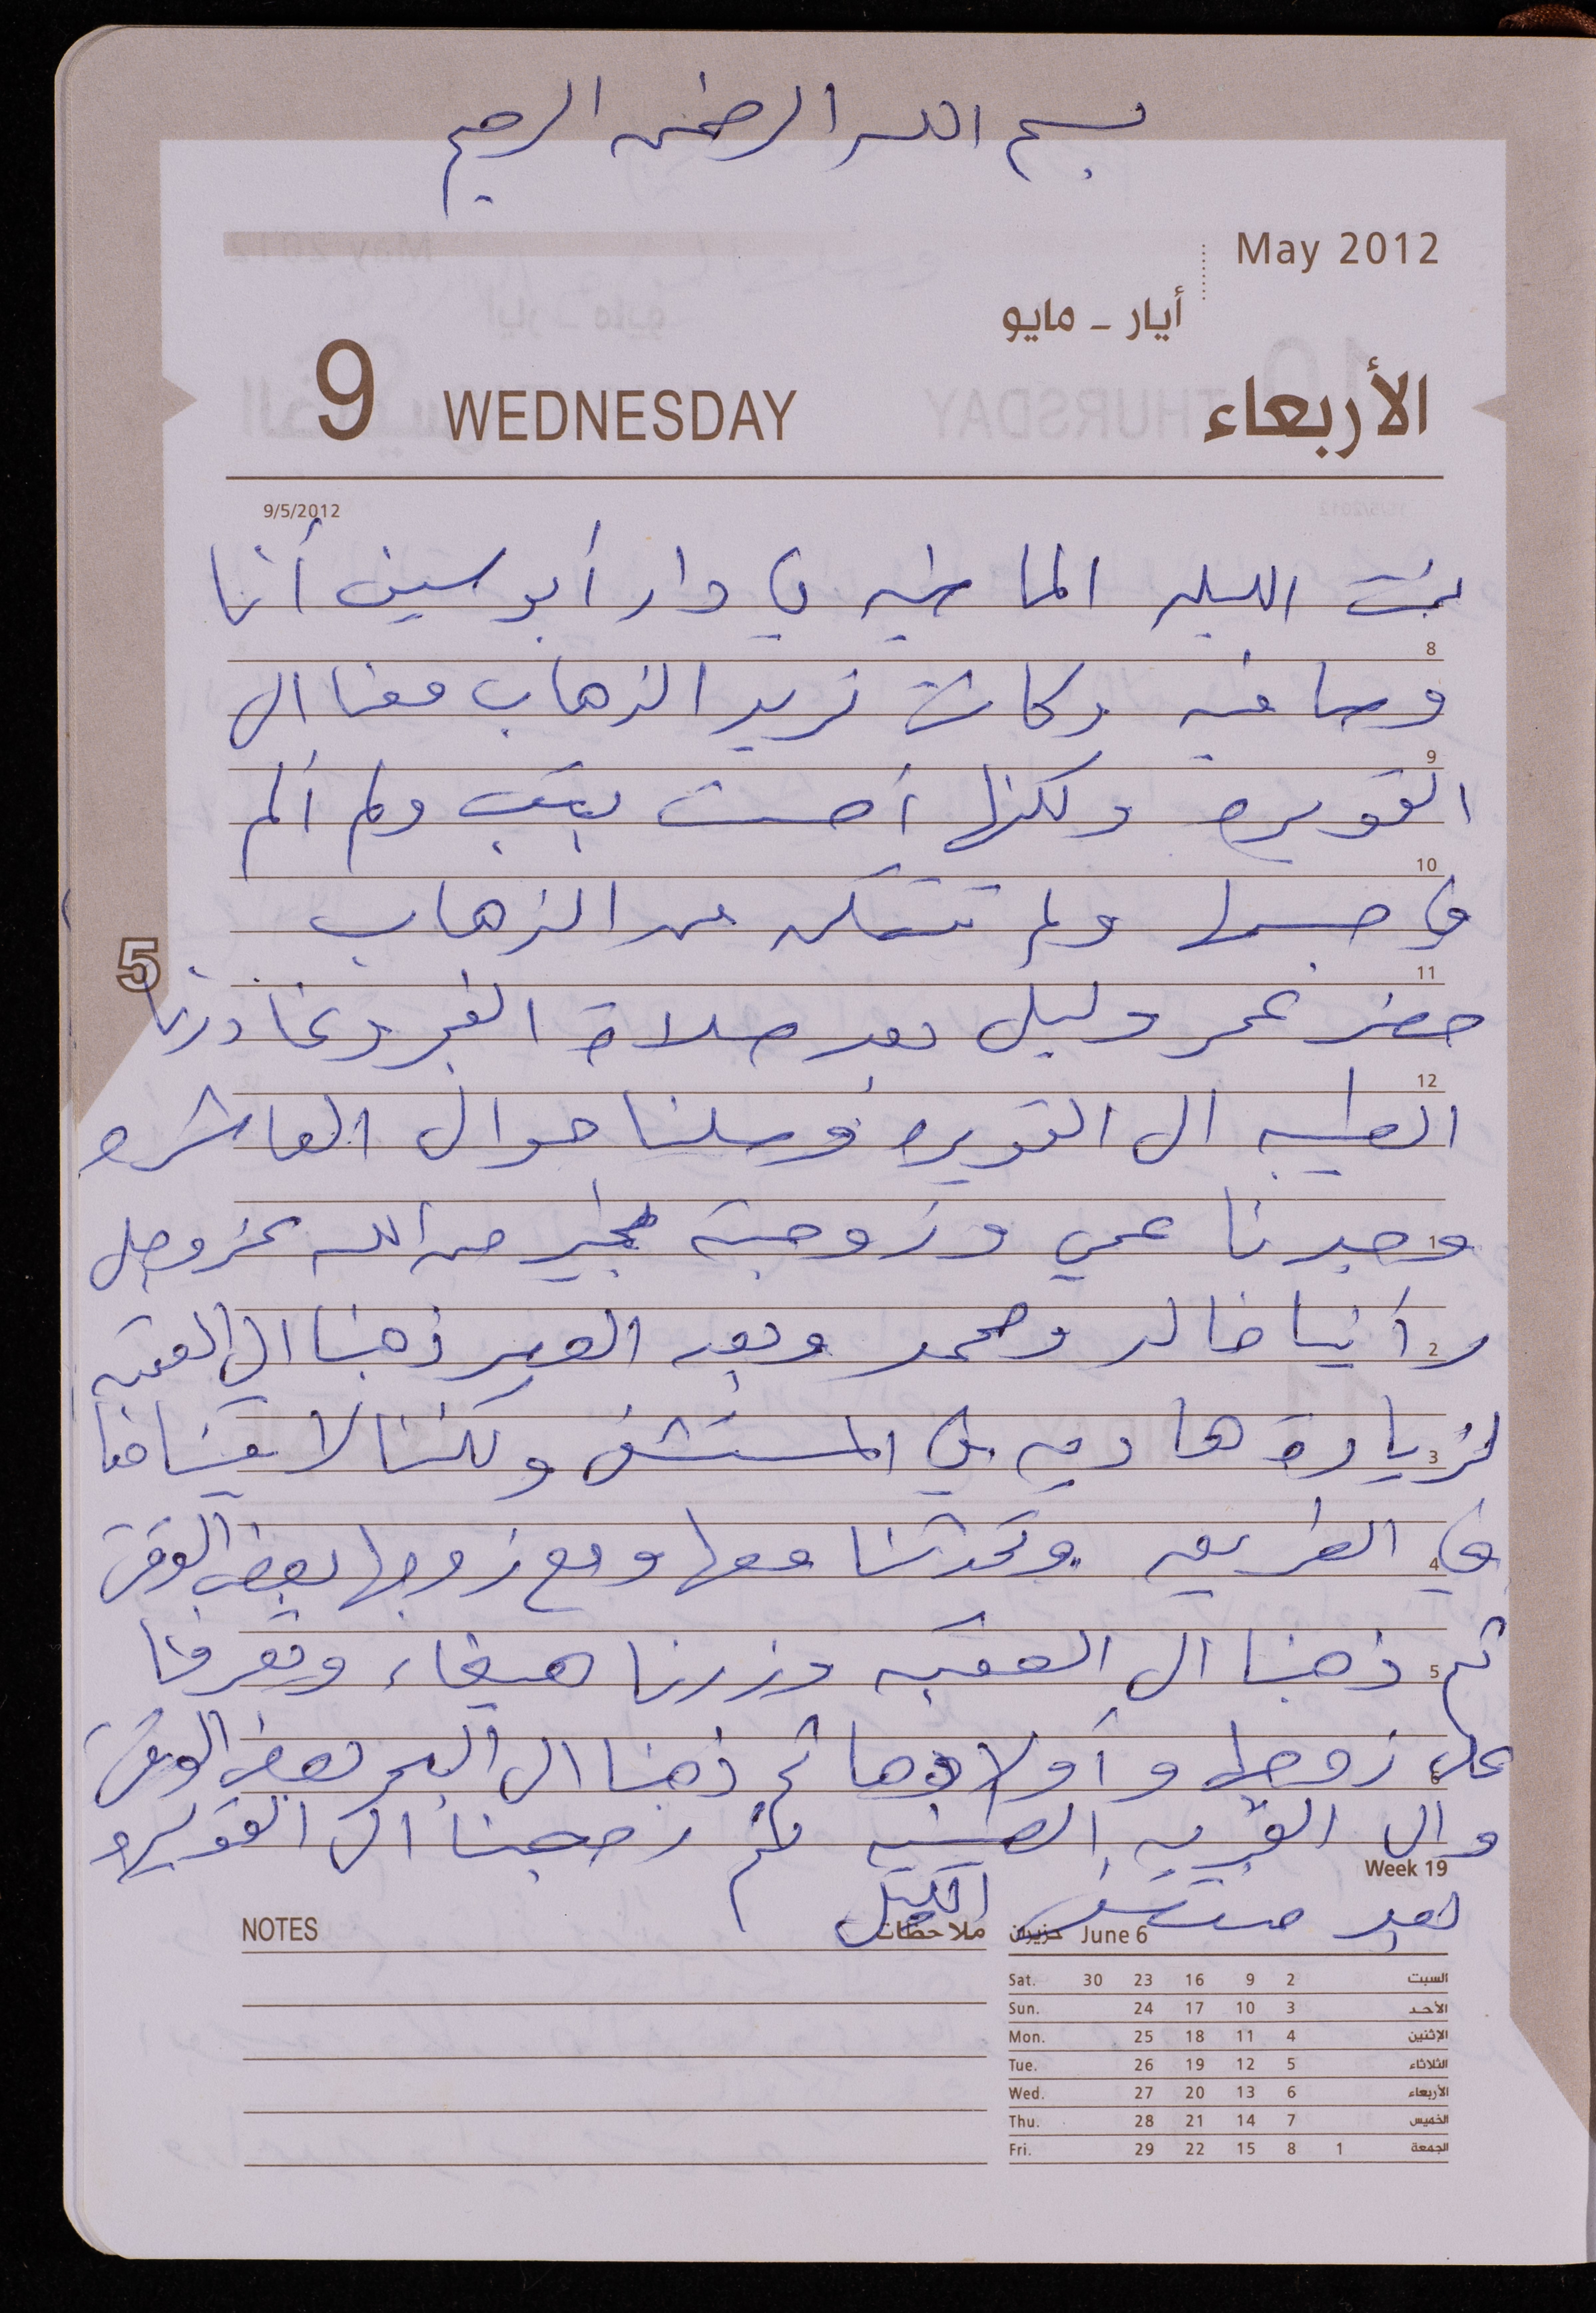 بسم الله الرحمن الرحيم
May 2012
أيار - مايو
9 WEDNESDAY الأربعاء
9/5/2012
بنت الليله الماضيه في دار أبو سيف أنا
8
وصافيه وكانت تريد الذهاب معنا الى
9
القويره ولكنها أحست بتعب ولم ألم
10
في جسمها ولم تتمكن من الذهاب
11
5
حضر عمر وليل بعد صلاة الفجر وغادرنا
12
الطيبه الى القويره وصلنا حوالي العاشره
1
وجدنا عمي وزوجته بخير من الله عز وجل
2
رأينا خالد ومحمد وبعد العصر ذهبنا الى العقبه
3
لزيارة هاديه في المستشفى ولكننا لاقيناها
4
في الطريق وتحدثنا معها ومع زوجها بعض الوقت
5
ثم ذهبنا الى العقبه وزرنا هيفاء وتعرفنا
على زوجها وأولادها ثم ذهبنا الى البحر بعض الوقت
والى القريه الصينيه ثم رجعنا الى القويره
Week 19
بعد منتصف الليل
NOTES ملاحظات
June 6 حزيران
Sat. 30 23 16 9 2 السبت
Sun. 24 17 10 3 الأحد
Mon. 25 18 11 4 الإثنين
Tue. 26 19 12 5 الثلاثاء
Wed. 27 20 13 6 الأربعاء
Thu. 28 21 14 7 الخميس
Fri. 29 22 15 8 1 الجمعة